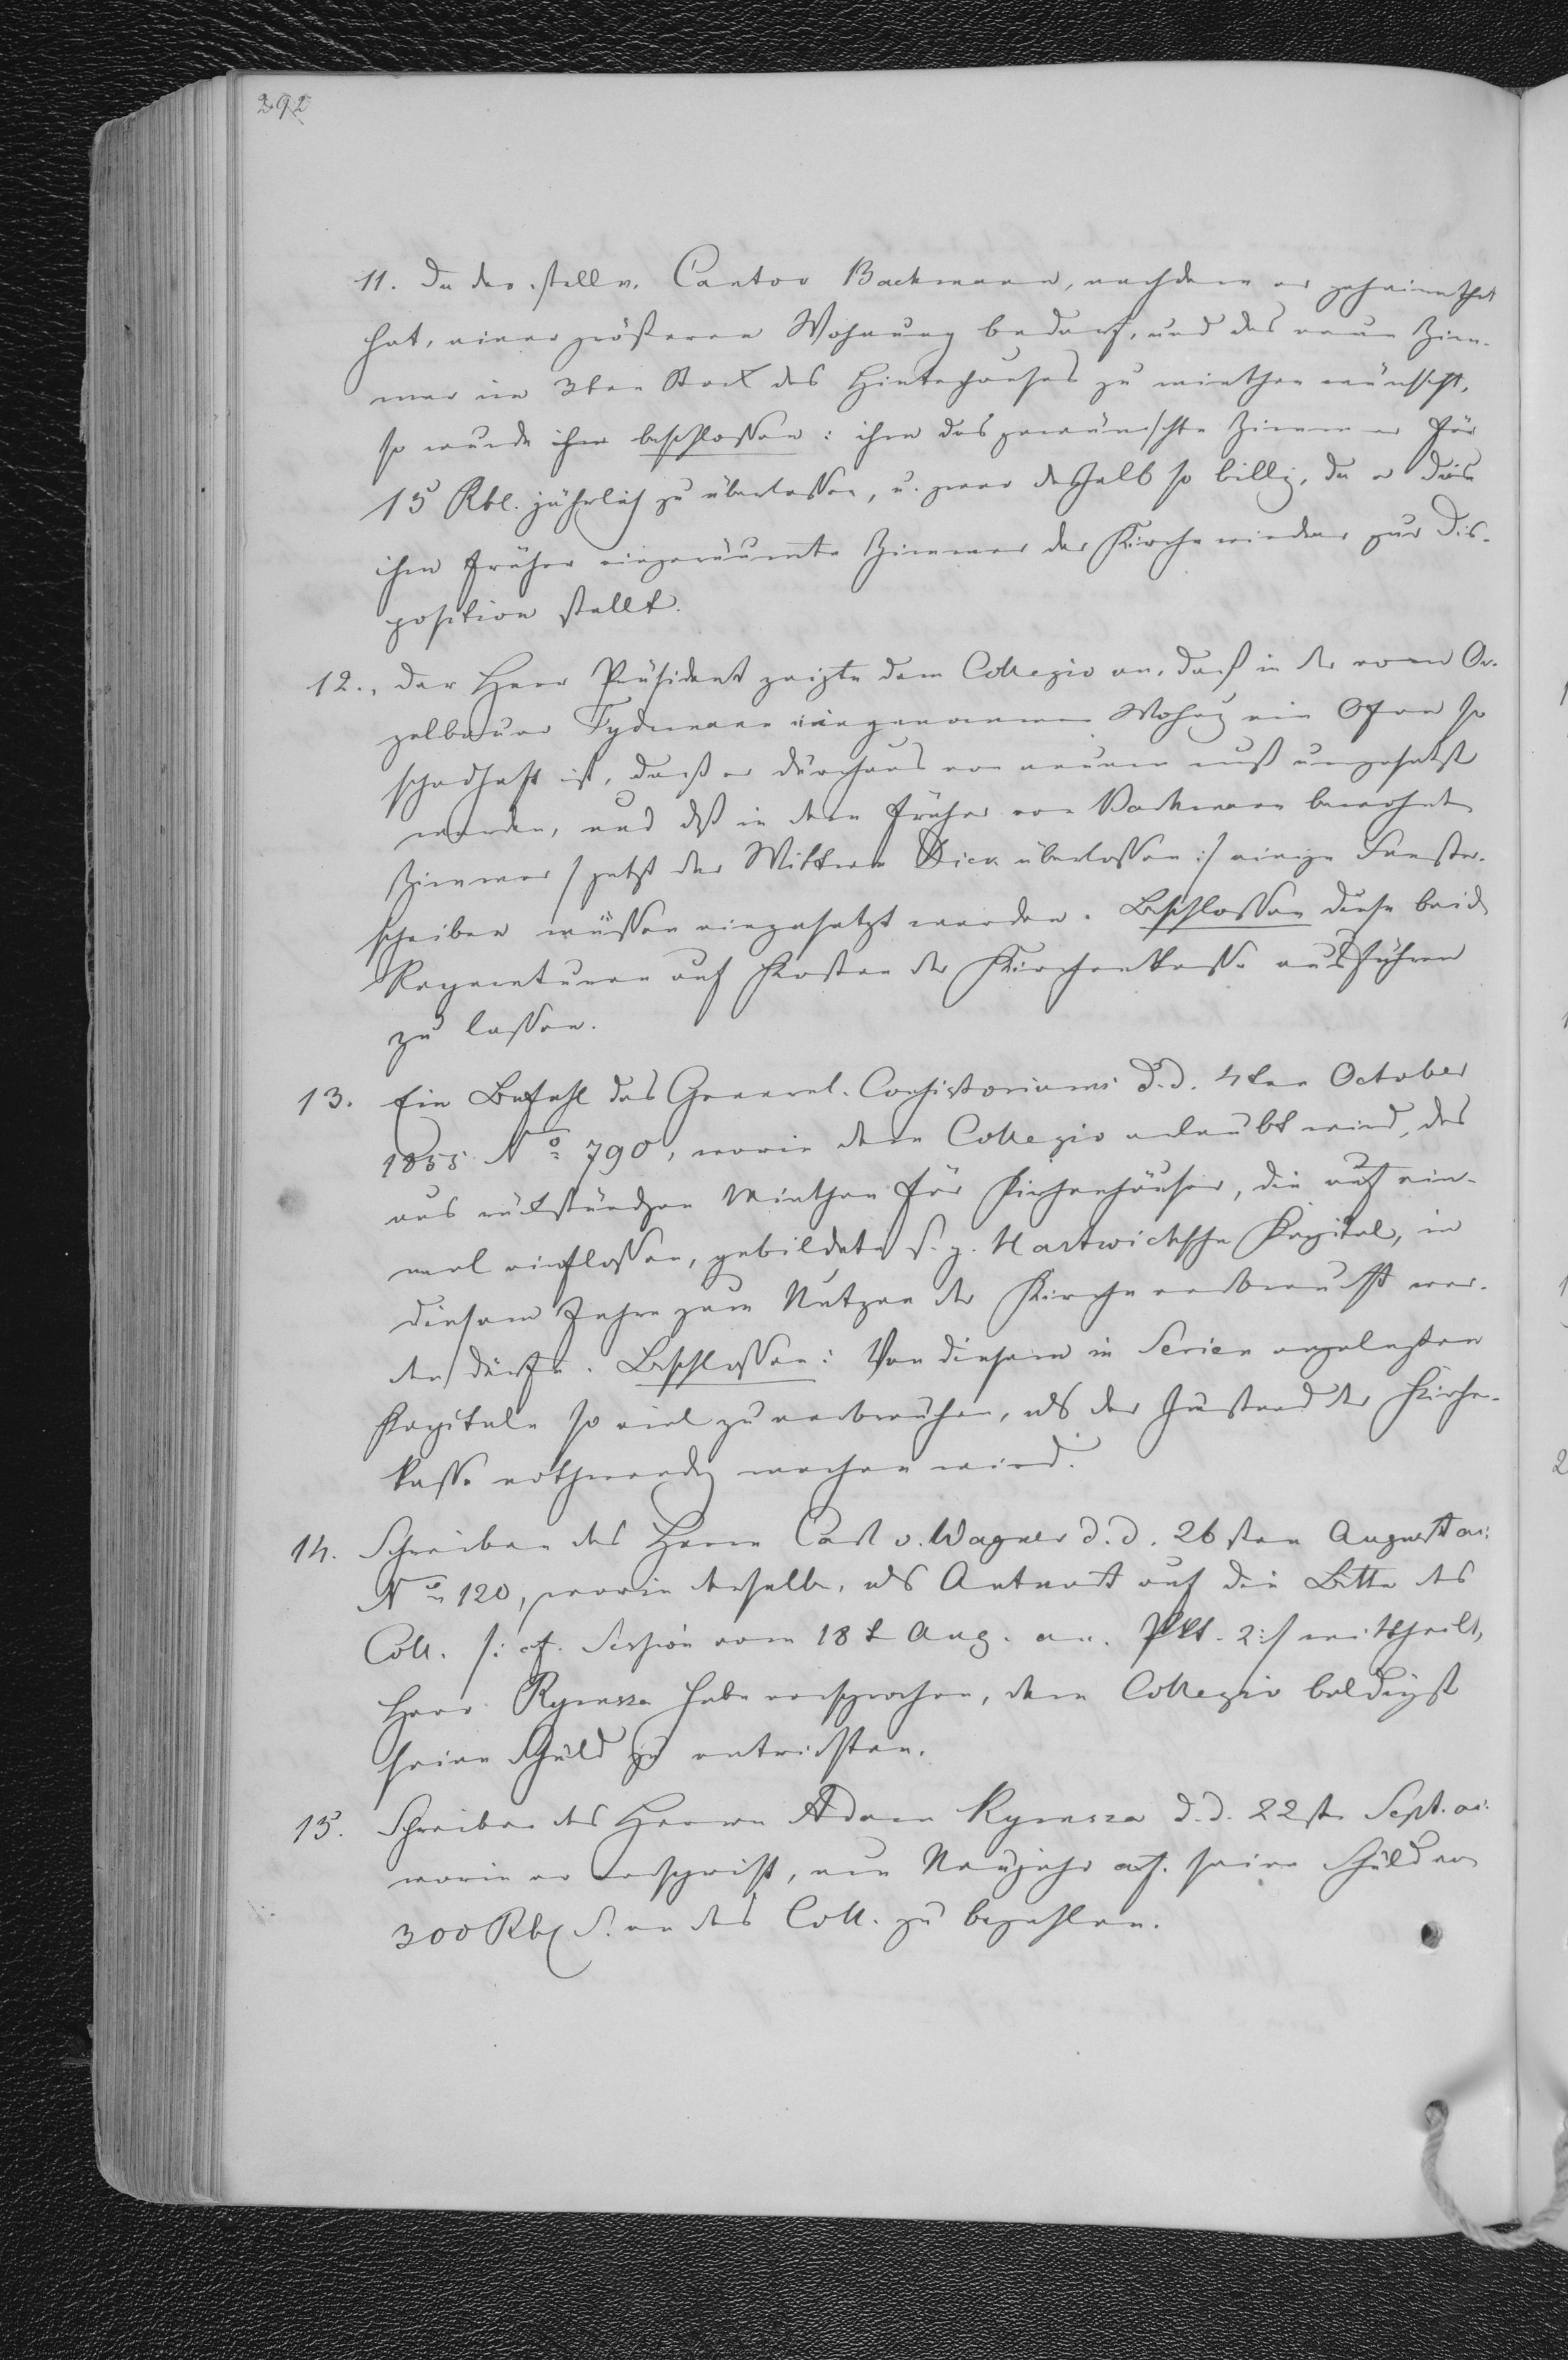 292
11. Da der stellv. Cantor Backmann, nachdem er geheirathet
hat, einer größeren Wohnung bedarf, und das neue Zim-
mer im 3ten Stock des Hinterhauses zu miethen wünscht,
so wurde ihm beschlossen: ihm das gewünschte Zimmer für
15 Rbl. jährlich zu überlassen, u. zwar deshalb so billig, da er das
ihm früher eingeräumte Zimmer der Kirche wieder zur Dis-
position stellt.
12., Der Herr Präsident zeigte dem Collegio an, daß in der vom Or-
gelbauer Tydemann eingenommenen Wohng ein Ofen so
schadhaft ist, daß er durchaus von neuem muß umgesetzt
werden, und daß in dem früher von Backmann bewohnten
Zimmer /: jetzt der Wittwe Dick überlassen :/ einige Fenster-
scheiben müssen eingesetzt werden. Beschlossen diese beide
Reparaturen auf Kosten der Kirchenkasse ausführen
zu lassen.
13. Ein Befehl des General-Consistoriums d.d. 4ten October
1855 No 790, worin dem Collegio erlaubt wird, das
aus rückständgen Miethen für Kirchenhäuser, die auf ein-
mal einflossen, gebildete s. g. Hartwicksche Kapital, in
diesem Jahre zum Nutzen der Kirche verbraucht wer-
den dürfe. Beschlossen: Von diesem in Serien angelegten
Kapitale so viel zu verbrauchen, als der Zustand der Kirchen-
kasse nothwendig machen wird.
14. Schreiben des Herrn Carl v. Wagner d.d. 26sten August ai:
No 120, worin derselbe, als Antwort auf die Bitte des
Coll. /: cf. Session vom 18t Aug. a.c. Pkt. 2:/ mittheilt,
Herr Rymsza habe versprochen, dem Collegio baldigst
seine Schuld zu entrichten.
15. Schreiben des Herrn Adam Rymsza d.d. 22ste Sept. ai.
worin er verspricht, um Neujahr seine Schuld von
300 Rbl S. an das Coll. zu bezahlen.